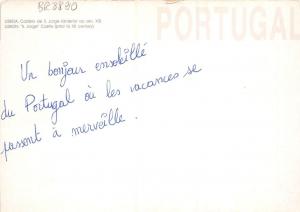 BR3890
PORTUGAL
LISBOA. Castelo de S. Jorge (anterior ao séc. XII)
LISBON. "S. Jorge" Castle (prior to XII century)
Un bonjour ensoleillé
du Portugal où les vacances se
passent à merveille.